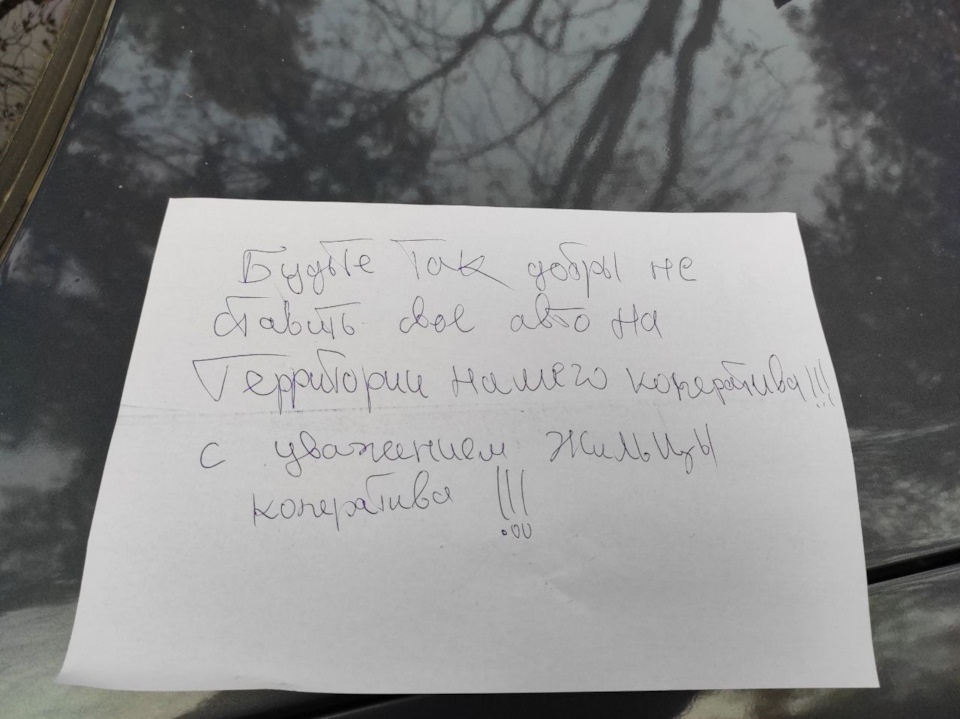 Будьте так добры не
ставить свое авто на
Территории нашего коператива!!!
с уважением жильцы
коператива !!!